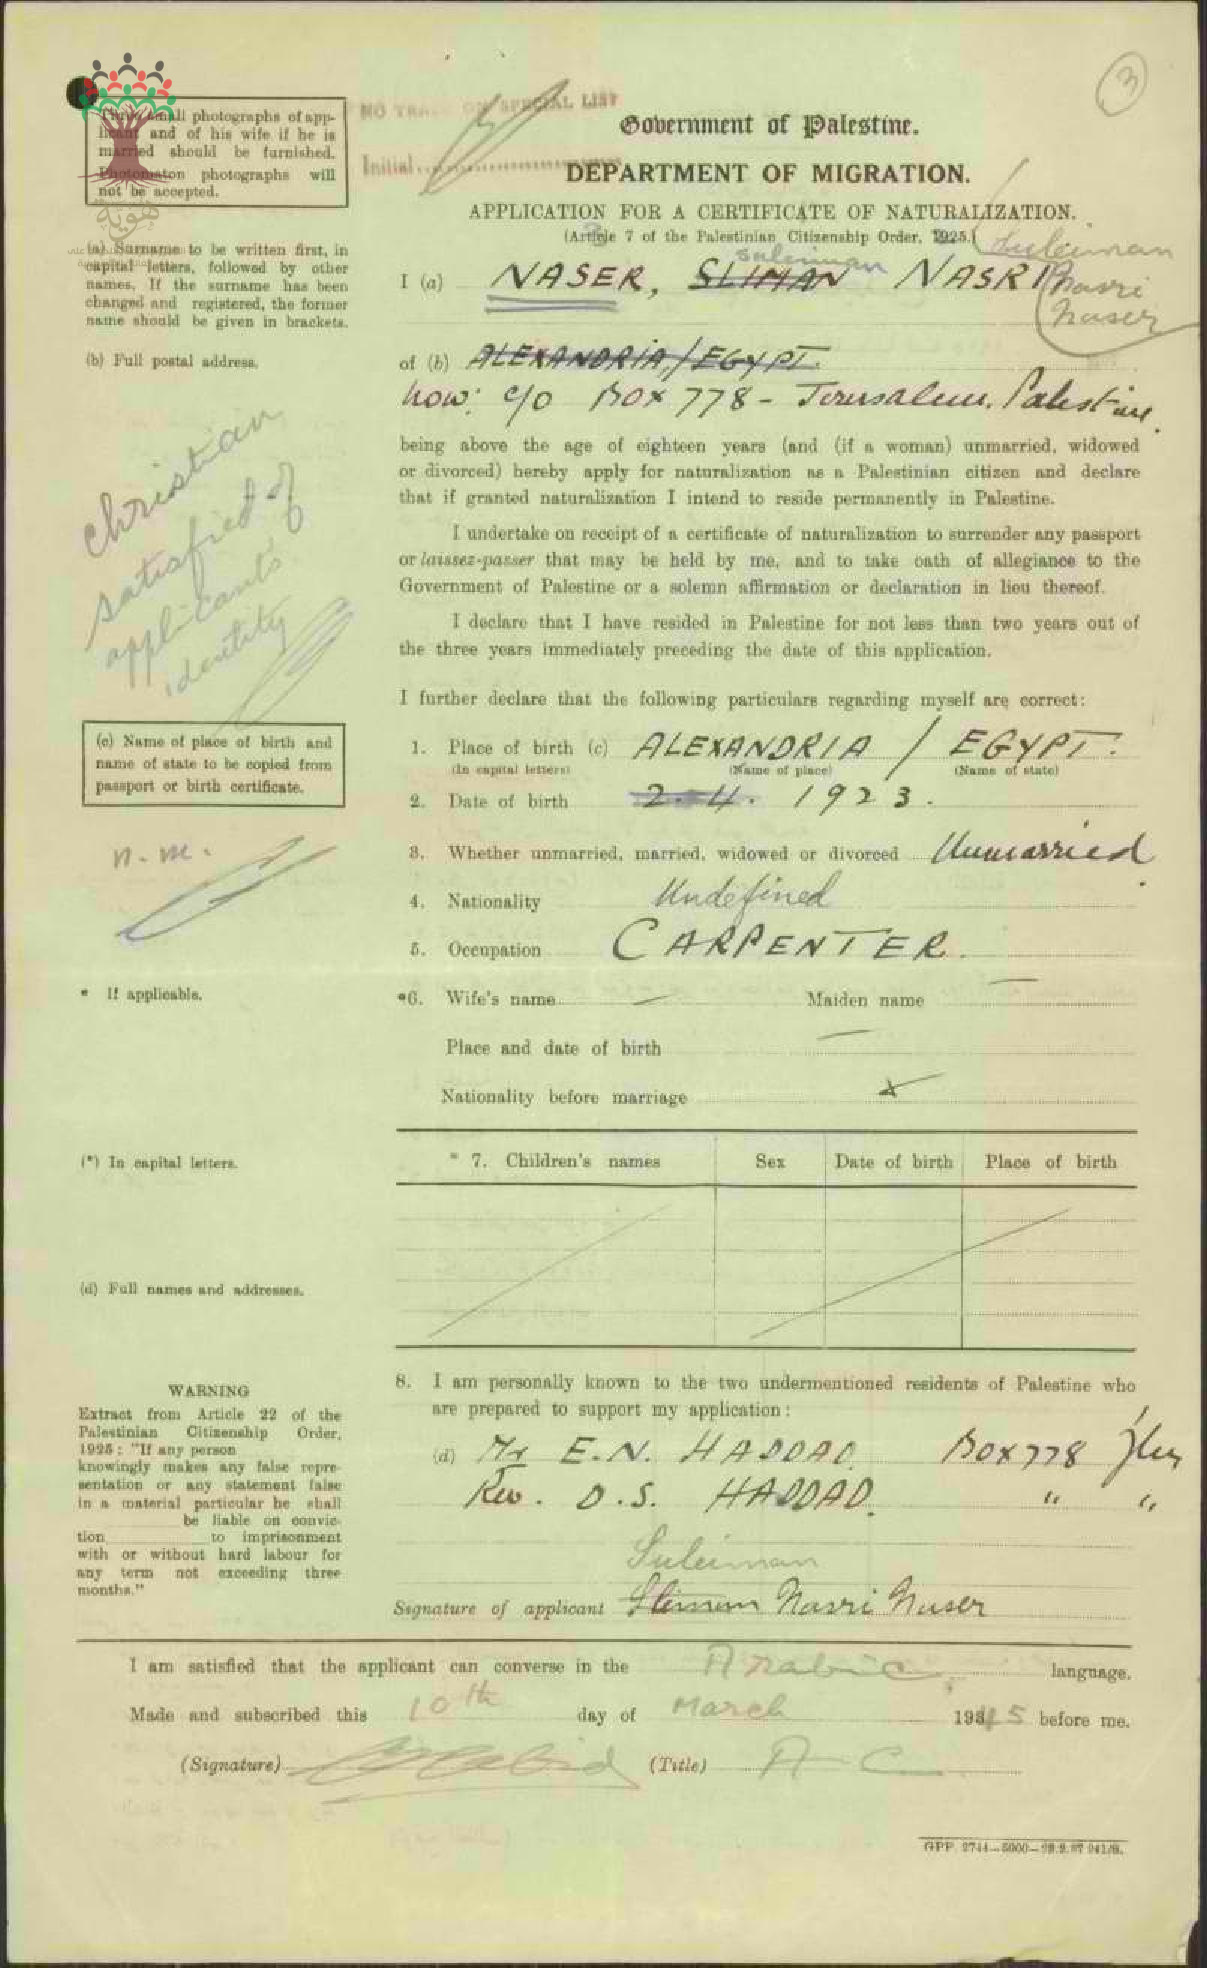 3
NO TRACE ON SPECIAL LIST
Initial
Three small photographs of app-
licant and of his wife if he is
married should be furnished.
Photomaton photographs will
not be accepted.
هوية
Government of Palestine.
DEPARTMENT OF MIGRATION.
APPLICATION FOR A CERTIFICATE OF NATURALIZATION.
(Article 7 of the Palestinian Citizenship Order, 1925.)
(a) Surname to be written first, in
capital letters, followed by other
names. If the surname has been
changed and registered, the former
name should be given in brackets.
Suleiman
Nasri
Naser
suleiman
I (a) NASER, SLIMAN NASRI
(b) Full postal address.
of (b) ALEXANDRIA/EGYPT.
now: c/o Box 778 - Jerusalem. Palestine.
being above the age of eighteen years (and (if a woman) unmarried, widowed
or divorced) hereby apply for naturalization as a Palestinian citizen and declare
that if granted naturalization I intend to reside permanently in Palestine.
christian
satisfied of
applicants
identity
I undertake on receipt of a certificate of naturalization to surrender any passport
or laissez-passer that may be held by me, and to take oath of allegiance to the
Government of Palestine or a solemn affirmation or declaration in lieu thereof.
I declare that I have resided in Palestine for not less than two years out of
the three years immediately preceding the date of this application.
I further declare that the following particulars regarding myself are correct:
(c) Name of place of birth and
name of state to be copied from
passport or birth certificate.
1. Place of birth (c) ALEXANDRIA / EGYPT.
(In capital letters) (Name of place) (Name of state)
2. Date of birth 2.4. 1923.
n.m.
3. Whether unmarried, married, widowed or divorced Unmarried
4. Nationality Undefined
5. Occupation CARPENTER.
* If applicable.
*6. Wife's name — Maiden name —
Place and date of birth —
Nationality before marriage
(*) In capital letters.
* 7. Children's names Sex Date of birth Place of birth
(d) Full names and addresses.
8. I am personally known to the two undermentioned residents of Palestine who
are prepared to support my application:
(d) Mr E.N. HADDAD. Box 778 Jlem
Rev. D.S. HADDAD. " "
WARNING
Extract from Article 22 of the
Palestinian Citizenship Order,
1925: "If any person
knowingly makes any false repre-
sentation or any statement false
in a material particular he shall
be liable on convic-
tion to imprisonment
with or without hard labour for
any term not exceeding three
months."
Suleiman
Signature of applicant Sliman Nasri Naser
I am satisfied that the applicant can converse in the Arabic language.
Made and subscribed this 10th day of March 1945 before me.
(Signature) (Title) A C
GPP. 2744—5000—28.9.37 941/S.